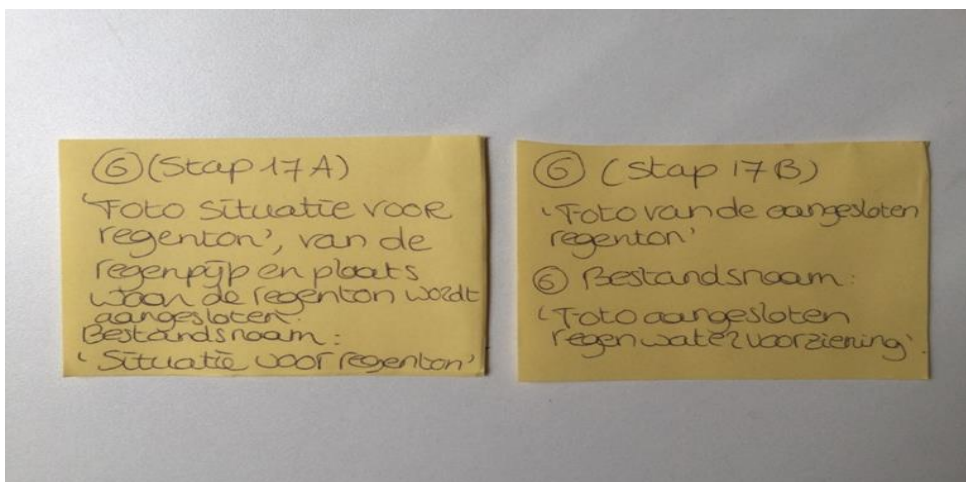 ⑥ (Stap 17A)
'Foto situatie voor
regenton', van de
regenpijp en plaats
waar de regenton wordt
aangesloten.
Bestandsnaam:
'Situatie voor regenton'
⑥ (Stap 17B)
'Foto van de aangesloten
regenton'
⑥ Bestandsnaam:
'Foto aangesloten
regenwatervoorziening'.